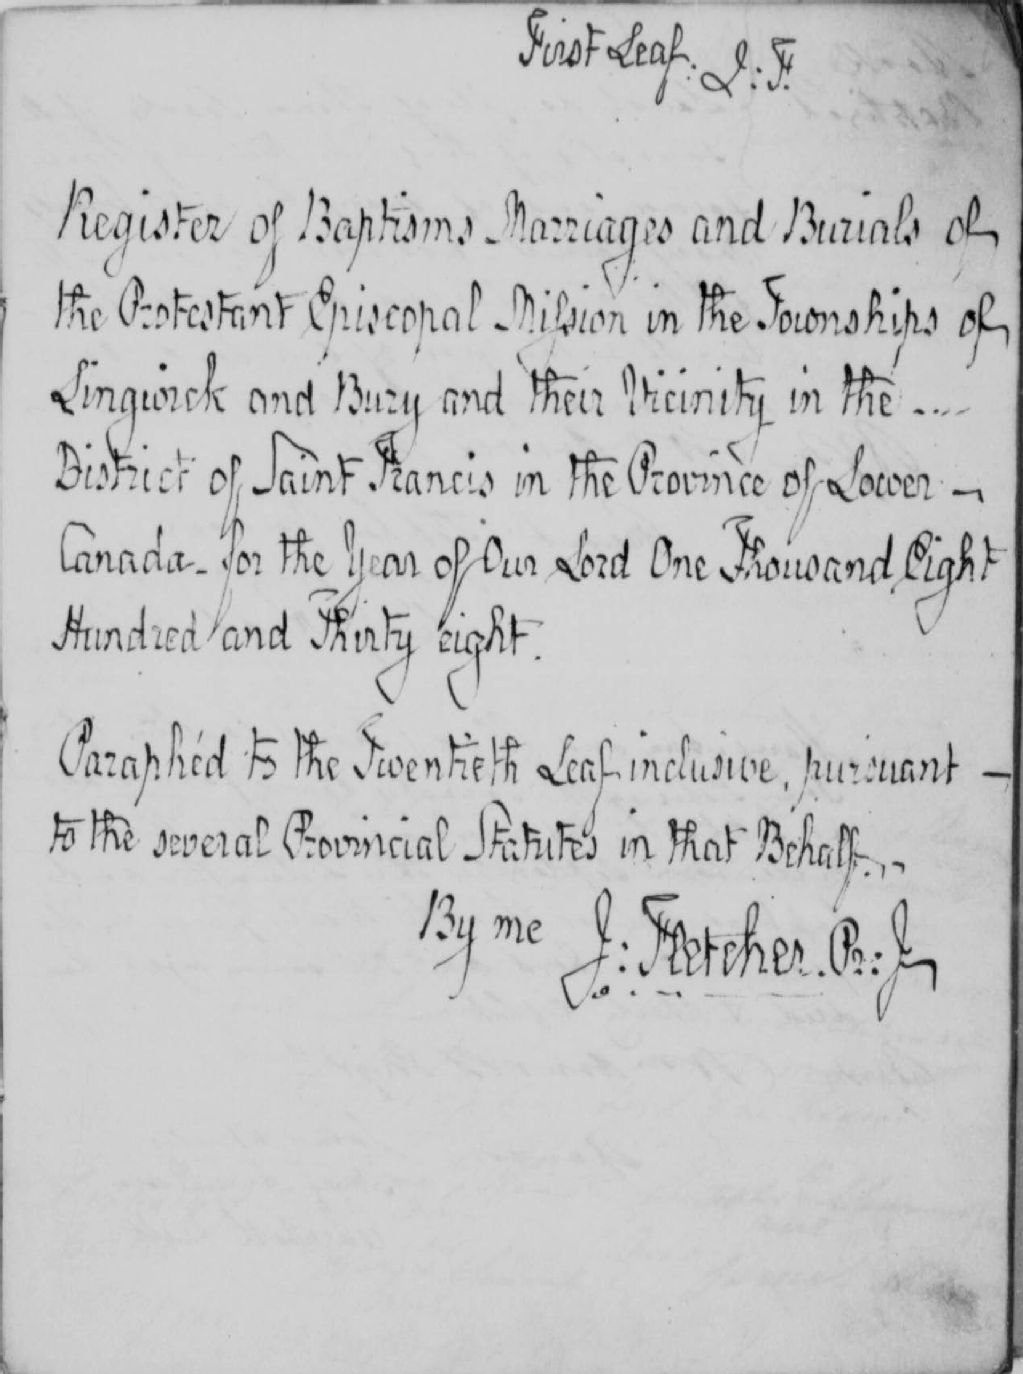 First Leaf. J: F.
Register of Baptisms Marriages and Burials of
the Protestant Episcopal Mission in the Townships of
Lingwick and Bury and their Vicinity in the ....
District of Saint Francis in the Province of Lower -
Canada - for the Year of Our Lord One Thousand Eight
Hundred and Thirty eight.
Paraphéd to the Twentieth Leaf inclusive, pursuant -
to the several Provincial Statutes in that Behalf. - -
By me J: Fletcher. Pr: J.